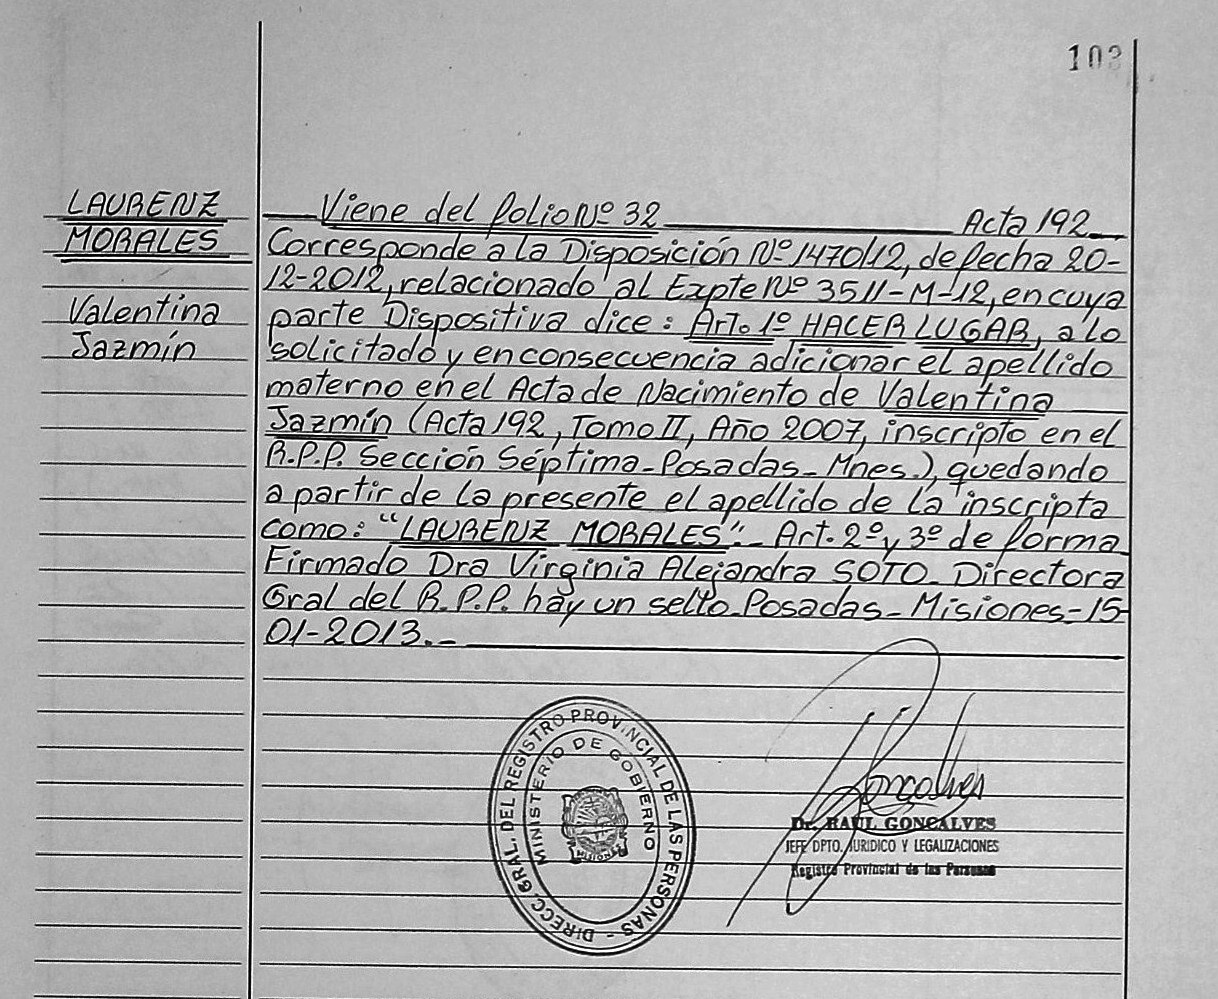 103
LAURENZ
MORALES
Valentina
Jazmín
Viene del folio Nº 32 Acta 192
Corresponde a la Disposición Nº 1470/12, de fecha 20-
12-2012, relacionado al Expte Nº 3511-M-12, en cuya
parte Dispositiva dice: Art. 1º HACER LUGAR, a lo
solicitado y en consecuencia adicionar el apellido
materno en el Acta de Nacimiento de Valentina
Jazmín (Acta 192, Tomo II, Año 2007, inscripto en el
R.P.P. Sección Séptima-Posadas-Mnes.), quedando
a partir de la presente el apellido de la inscripta
como: "LAURENZ MORALES". Art. 2º y 3º de forma
Firmado Dra Virginia Alejandra SOTO-Directora
Gral del R.P.P. hay un sello-Posadas-Misiones-15-
01-2013.-
DIRECC. GRAL. DEL REGISTRO PROVINCIAL DE LAS PERSONAS -
MINISTERIO DE GOBIERNO
MISIONES
Goncalves
Dr. RAUL GONCALVES
JEFE DPTO. JURIDICO Y LEGALIZACIONES
Registro Provincial de las Personas